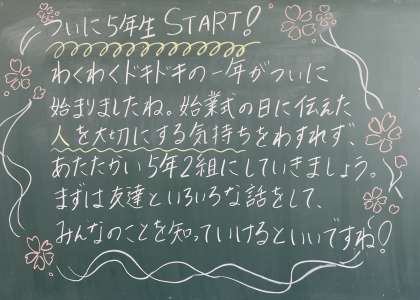 ついに5年生 START!
わくわくドキドキの一年がついに
始まりましたね。始業式の日に伝えた
人を大切にする気持ちをわすれず、
あたたかい5年2組にしていきましょう。
まずは友達といろいろな話をして、
みんなのことを知っていけるといいですね!